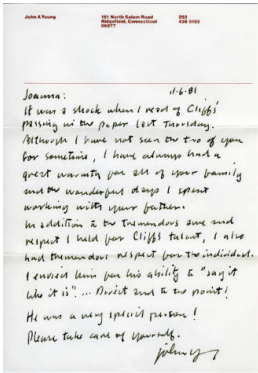 John A Young
161 North Salem Road
Ridgefield, Connecticut
06877
203
438 5155
11.6.81
Joanna:
It was a shock when I read of Cliff's
passing in the paper last Thursday.
Although I have not seen the two of you
for sometime, I have always had a
great warmth for all of your family
and the wonderful days I spent
working with your father.
In addition to the tremendous awe and
respect I held for Cliff's talent, I also
had tremendous respect for the individual.
I envied him for his ability to "say it
like it is"... Direct and to the point!
He was a very special person!
Please take care of yourself.
John Y